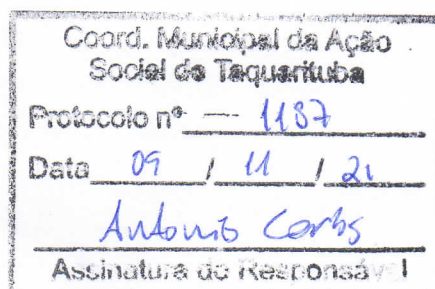 Coord. Municipal da Ação
Social de Taquarituba
Protocolo nº 1187
Data 09 / 11 / 21
Antonio Carlos
Assinatura do Responsável